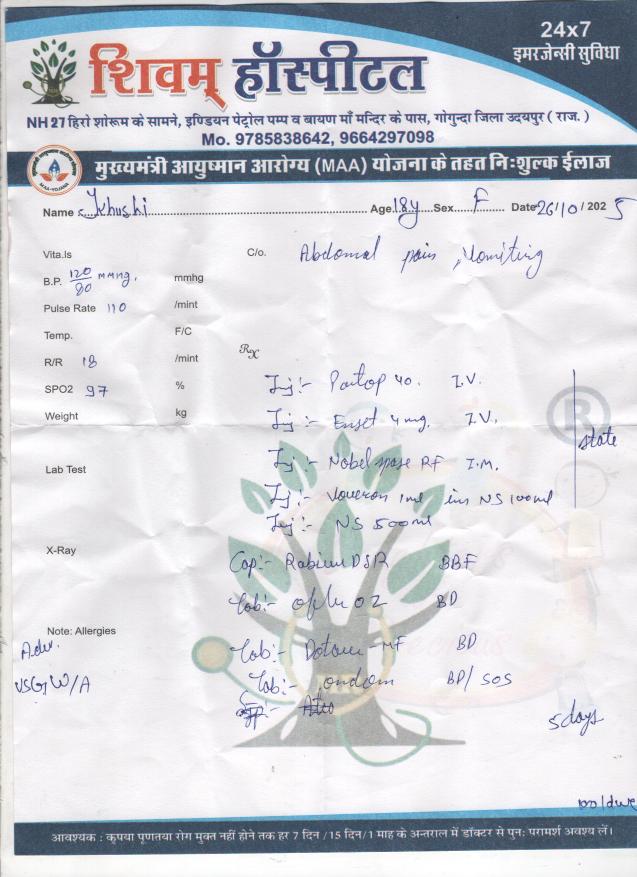 24x7
इमरजेन्सी सुविधा
शिवम् हॉस्पीटल
NH 27 हिरो शोरूम के सामने, इण्डियन पेट्रोल पम्प व बायण माँ मन्दिर के पास, गोगुन्दा जिला उदयपुर ( राज. )
Mo. 9785838642, 9664297098
मुख्यमंत्री आयुष्मान आरोग्य (MAA) योजना के तहत निःशुल्क ईलाज
Name Khushi Age 18y Sex F Date 26/10/2025
Vita.ls C/o. Abdomal pain, Vomiting
B.P. 120/80 mmHg. mmhg
Pulse Rate 110 /mint
Temp. F/C
R/R 18 /mint
Rx
SPO2 97 %
Inj:- Pantop 40. I.V.
Weight kg
Inj:- Emset 4mg. I.V.
state
Lab Test
Inj:- Nobelspase RF I.M.
Inj:- Voveron 1ml in NS 100ml
Inj:- NS 500ml
X-Ray
Cap:- Rabium DSR BBF
Tab:- oflu oz BD
Note: Allergies
Adv.
Tab:- Dotam-MF BD
USG W/A
Tab:- ondem BD/SOS
5 days
आवश्यक : कृपया पूणतया रोग मुक्त नहीं होने तक हर 7 दिन /15 दिन/1 माह के अन्तराल में डॉक्टर से पुनः परामर्श अवश्य लें।